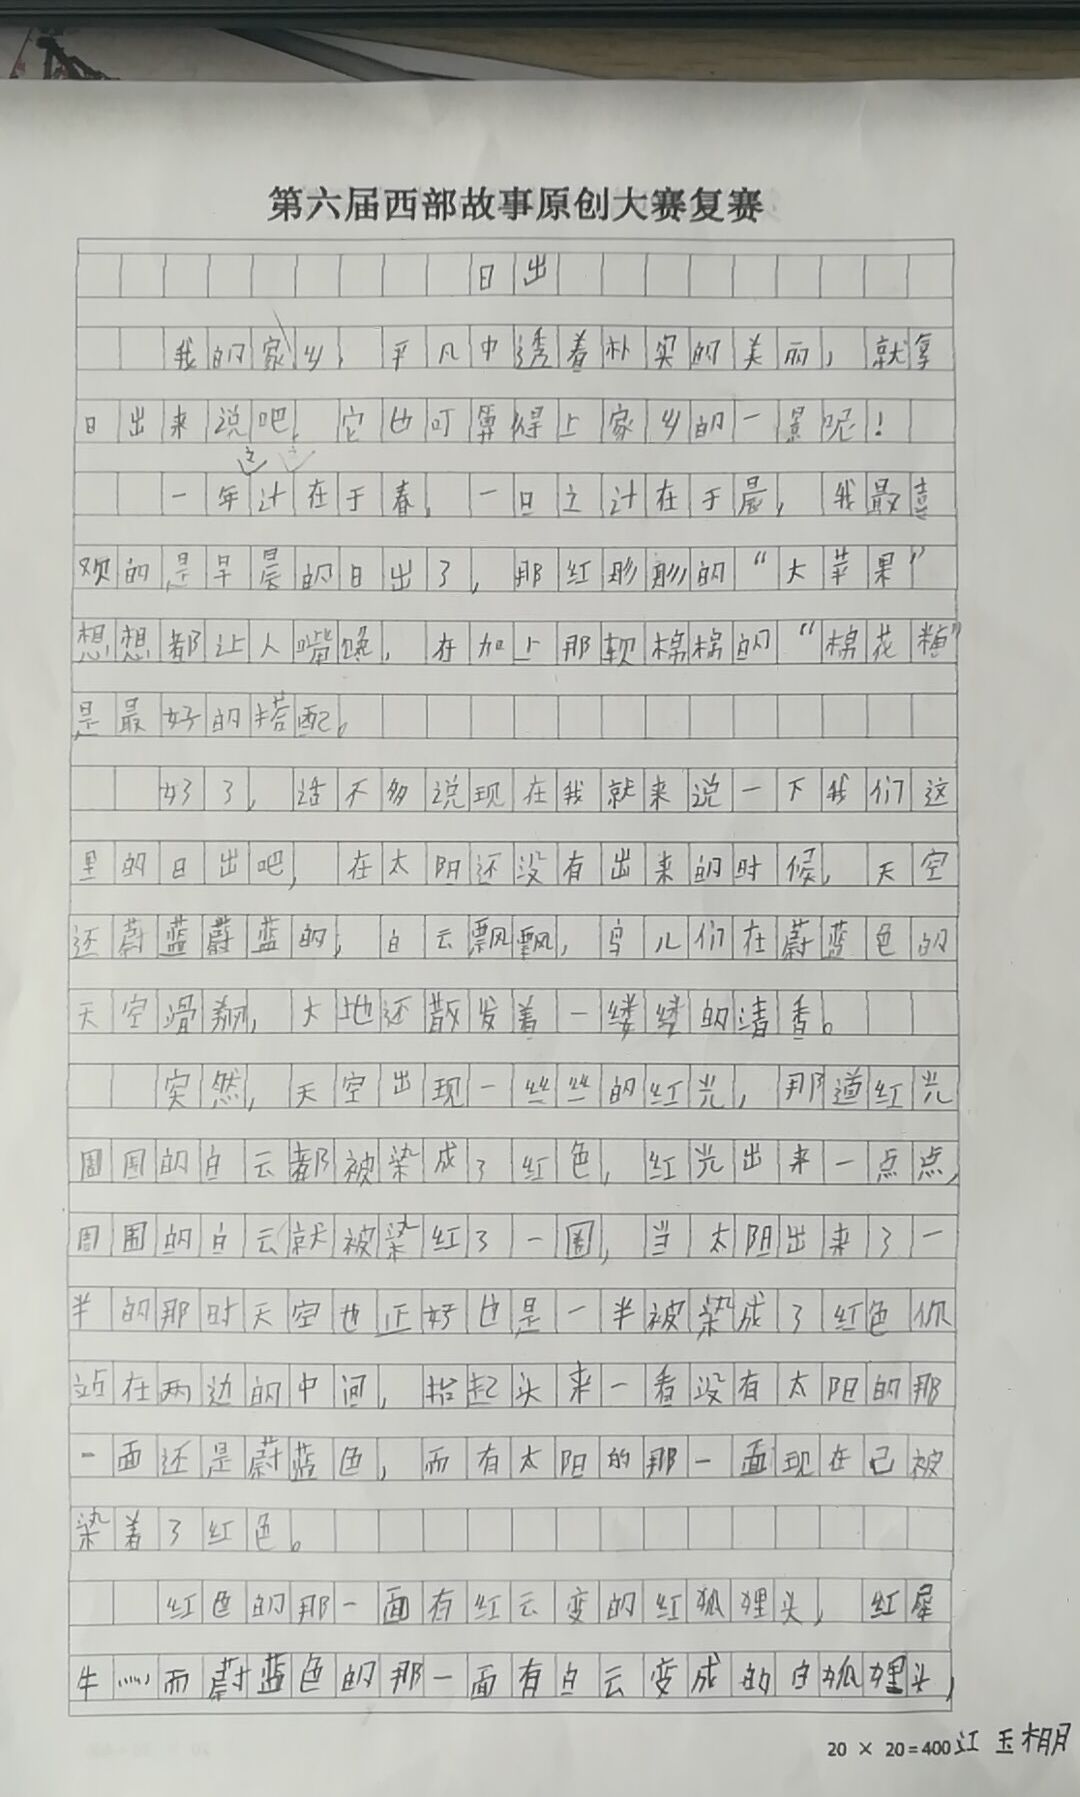 第六届西部故事原创大赛复赛
日出
我的家乡，平凡中透着朴实的美丽，就拿
日出来说吧，它也可算得上家乡的一景呢！
一年之计在于春，一日之计在于晨，我最喜
欢的是早晨的日出了，那红彤彤的“大苹果”
想想都让人嘴馋，在加上那软棉棉的“棉花糖”
是最好的搭配。
好了，话不多说现在我就来说一下我们这
里的日出吧，在太阳还没有出来的时候，天空
还蔚蓝蔚蓝的，白云飘飘，鸟儿们在蔚蓝色的
天空滑翔，大地还散发着一缕缕的清香。
突然，天空出现一丝丝的红光，那道红光
周围的白云都被染成了红色，红光出来一点点，
周围的白云就被染红了一圈，当太阳出来了一
半的那时天空也正好也是一半被染成了红色你
站在两边的中间，抬起头来一看没有太阳的那
一面还是蔚蓝色，而有太阳的那一面现在已被
染着了红色。
红色的那一面有红云变的红狐狸头，红犀
牛……而蔚蓝色的那一面有白云变成的白狐狸头，
20 × 20=400 江玉棚